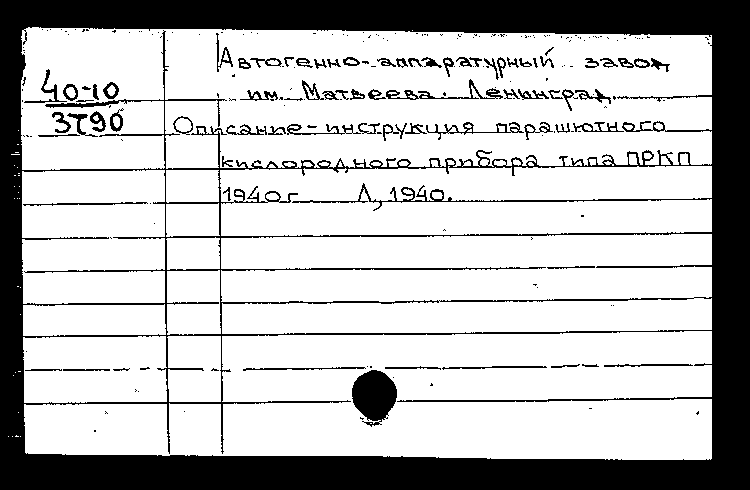 Автогенно-аппаратурный завод
им. Матвеева. Ленинград.
40-10
3790
Описание-инструкция парашютного
кислородного прибора типа ПРКП
1940г Л, 1940.